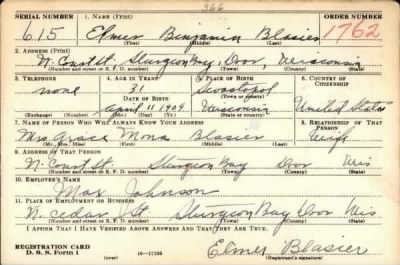 366
SERIAL NUMBER 1. NAME (Print) ORDER NUMBER
615 Elmer Benjamin Blasier 1762
(First) (Middle) (Last)
2. ADDRESS (Print)
N. Court St. Sturgeon Bay, Door, Wisconsin
(Number and street or R. F. D. number) (Town) (County) (State)
3. TELEPHONE 4. AGE IN YEARS 5. PLACE OF BIRTH 6. COUNTRY OF CITIZENSHIP
none 31 Sevastopol
DATE OF BIRTH (Town or county)
April 11 1909 Wisconsin United States
(Exchange) (Number) (Mo.) (Day) (Yr.) (State or country)
7. NAME OF PERSON WHO WILL ALWAYS KNOW YOUR ADDRESS 8. RELATIONSHIP OF THAT PERSON
Mrs. Grace Mona Blasier Wife
(Mr., Mrs., Miss) (First) (Middle) (Last)
9. ADDRESS OF THAT PERSON
N. Court St. Sturgeon Bay Door Wis
(Number and street or R. F. D. number) (Town) (County) (State)
10. EMPLOYER'S NAME
Max Johnson
11. PLACE OF EMPLOYMENT OR BUSINESS
N. Cedar St Sturgeon Bay Door Wis
(Number and street or R. F. D. number) (Town) (County) (State)
I AFFIRM THAT I HAVE VERIFIED ABOVE ANSWERS AND THAT THEY ARE TRUE.
REGISTRATION CARD
D. S. S. FORM 1 (over) 16—17105 Elmer Blasier
(Registrant's signature)